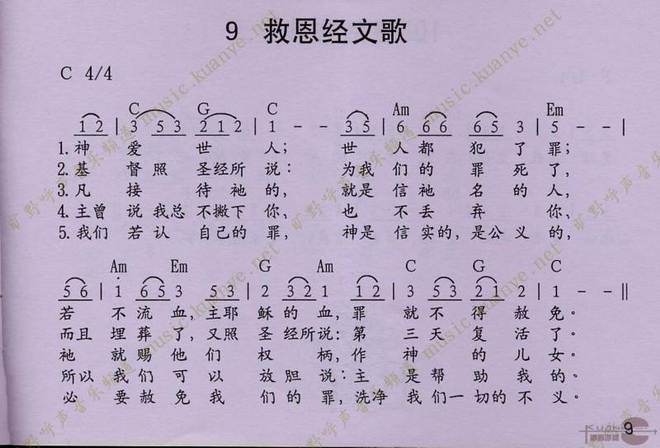 9 救恩经文歌
C 4/4
C G C Am Em
1 2 | 3 5 3 2 1 2 | 1 - - 3 5 | 6 6 6 6 5 3 | 5 - - |
1.神 爱 世 人； 世 人 都 犯 了 罪；
2.基 督 照 圣经所 说： 为我 们 的 罪 死 了，
3.凡 接 待祂 的， 就是 信祂 名 的 人，
4.主曾 说我总 不撇下 你， 也 不 丢 弃 你，
5.我们 若认 自己的 罪， 神是 信实的，是公义 的，
Am Em G Am C G C
5 6 | 1 6 5 3 5 | 2 3 2 1 1 2 | 3 5 3 2 1 2 | 1 - - ||
若 不 流 血，主耶 稣 的 血，罪 就 不 得 赦 免。
而且 埋 葬 了，又照 圣 经所说：第 三 天 复 活 了。
祂 就 赐 他 们 权 柄，作 神 的 儿 女。
所以 我 们 可 以 放 胆 说：主 是 帮 助 我 的。
必 要 赦 免 我 们 的 罪，洗净 我们 一切的 不 义。
旷野呼声音乐频道 music.kuanye.net
9